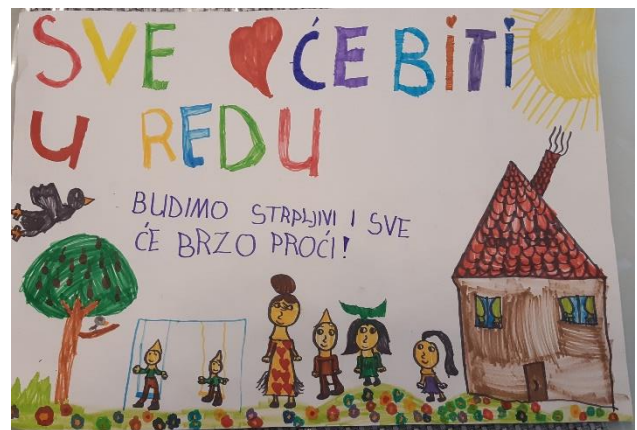 SVE ĆE BITI
U REDU
BUDIMO STRPLJIVI I SVE
ĆE BRZO PROĆI!